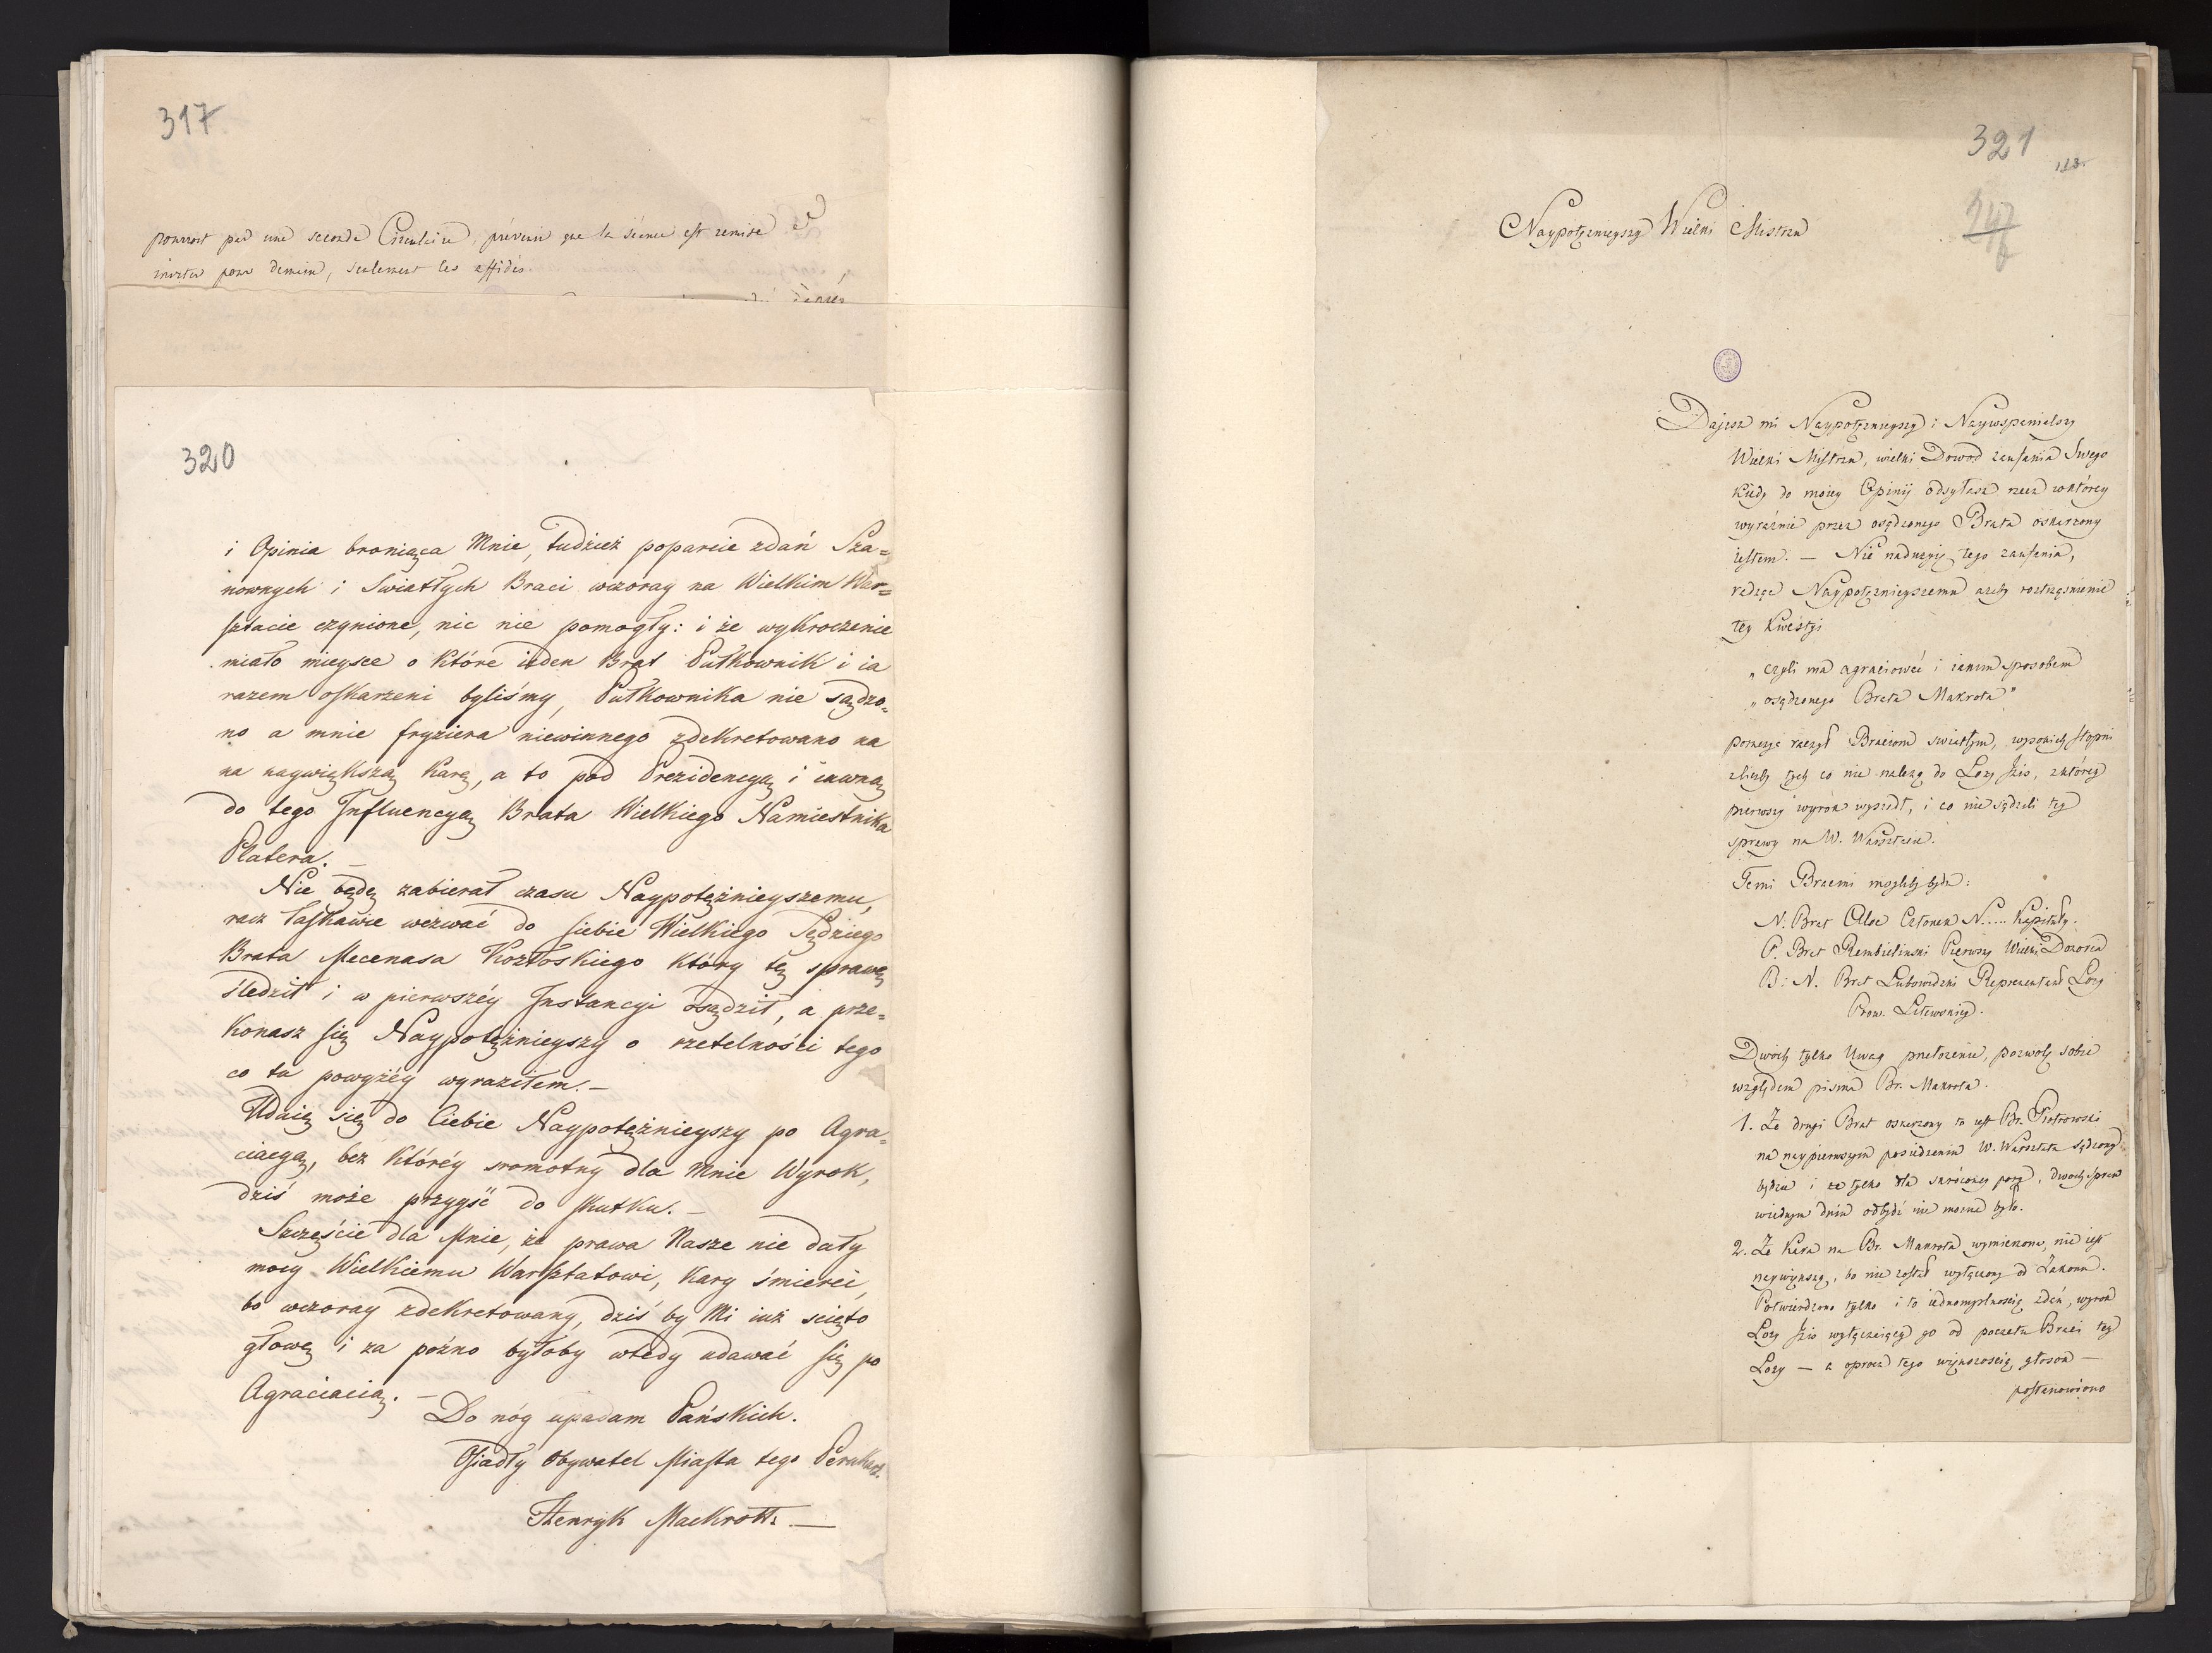 317
pourront par une seconde Circulaire, prévenir que la séance est remise et
inviter pour demain, seulement les affidés.
320
i Opinia broniąca Mnie, tudzież poparcie zdań Sza=
nownych i Swiatłych Braci wczoray na Wielkim War=
sztacie czynione, nic nie pomogły: i że wykroczenie
miało mieysce o które ieden Brat Pułkownik i ia
razem oskarzeni byliśmy, Pułkownika nie sądzo=
no a mnie fryziera niewinnego zdekretowano na
na naywiększą karę, a to pod Prezidencyą i iawną
do tego Influencyą Brata Wielkiego Namiestnika
Platera. —
Nie będę zabierał czasu Naypotężnieyszemu,
racz łaskawie wezwać do siebie Wielkiego Sędziego
Brata Mecenasa Kozłoskiego który tę sprawę
śledził i w pierwszéy Instancyi osądził, a prze=
konasz się Naypotężnieyszy o rzetelności tego
co tu powyżéy wyraziłem. —
Udaię się do Ciebie Naypotężnieyszy po Agra=
ciacyą, bez któréy sromotny dla Mnie Wyrok,
dziś może przyyść do skutku. —
Szczęście dla Mnie, że prawa Nasze nie dały
mocy Wielkiemu Warsztatowi, kary śmierci,
bo wczoray zdekretowany, dziś by Mi iuż scięto
głowę i za pożno byłoby wtedy udawać się po
Agraciacią. —
Do nóg upadam Pańskich.
Osiadły Obywatel Miasta tego
Henryk Mackrott. —
321
247
Naypotężnieyszy Wielki Mistrzu
Dajesz mi Naypotężnieyszy i Naywspanialszy
Wielki Mistrzu, wielki Dowod zaufania Swego
kiedy do moiey Opinij odsyłasz rzecz w którey
wyraźnie przez osądzonego Brata oskarzony
iestem. — Nie nadużyię tego zaufania,
radząc Naypotężnieyszemu ażeby roztrząśnienie
tey kwestyi
„czyli ma agraciować i iakim sposobem
„osądzonego Brata Makrota"
poruczyć raczył Braciom swiatłym, wysokich stopni
zliczby tych co nie należą do Loży Izis, z którey
pierwszy wyrok wyszedł, i co nie sądzili tey
sprawy na W. Warsztacie.
Temi Bracmi mogliby bydź:
N. Brat Aloe Członek N..... Kapituły.
P. Brat Rembieliński Pierwszy Wielki Dozorca
B: N. Brat Lubowidzki Reprezentant Loży
Prow. Litewskiey.
Dwóch tylko Uwag przełożenie, pozwolę sobie
względem pisma Br. Makrota.
1. Że drugi Brat oskarzony to iest Br. Piotrowski
na naypierwszym posiedzeniu W. Warsztatu sądzony
będzie i że tylko dla skróconey pory, dwoch spraw
wiednym dniu odbydź nie można było.
2. Że Kara na Br. Makrota wymierzona, nie iest
naywyższą, bo nie został wyłączony od Zakonu.
Potwierdzono tylko i to iednomyślnością zdań, wyrok
Loży Izis wyłączaiący go od pocztu Braci tey
Loży — a oprocz tego większością głosow —
postanowiono